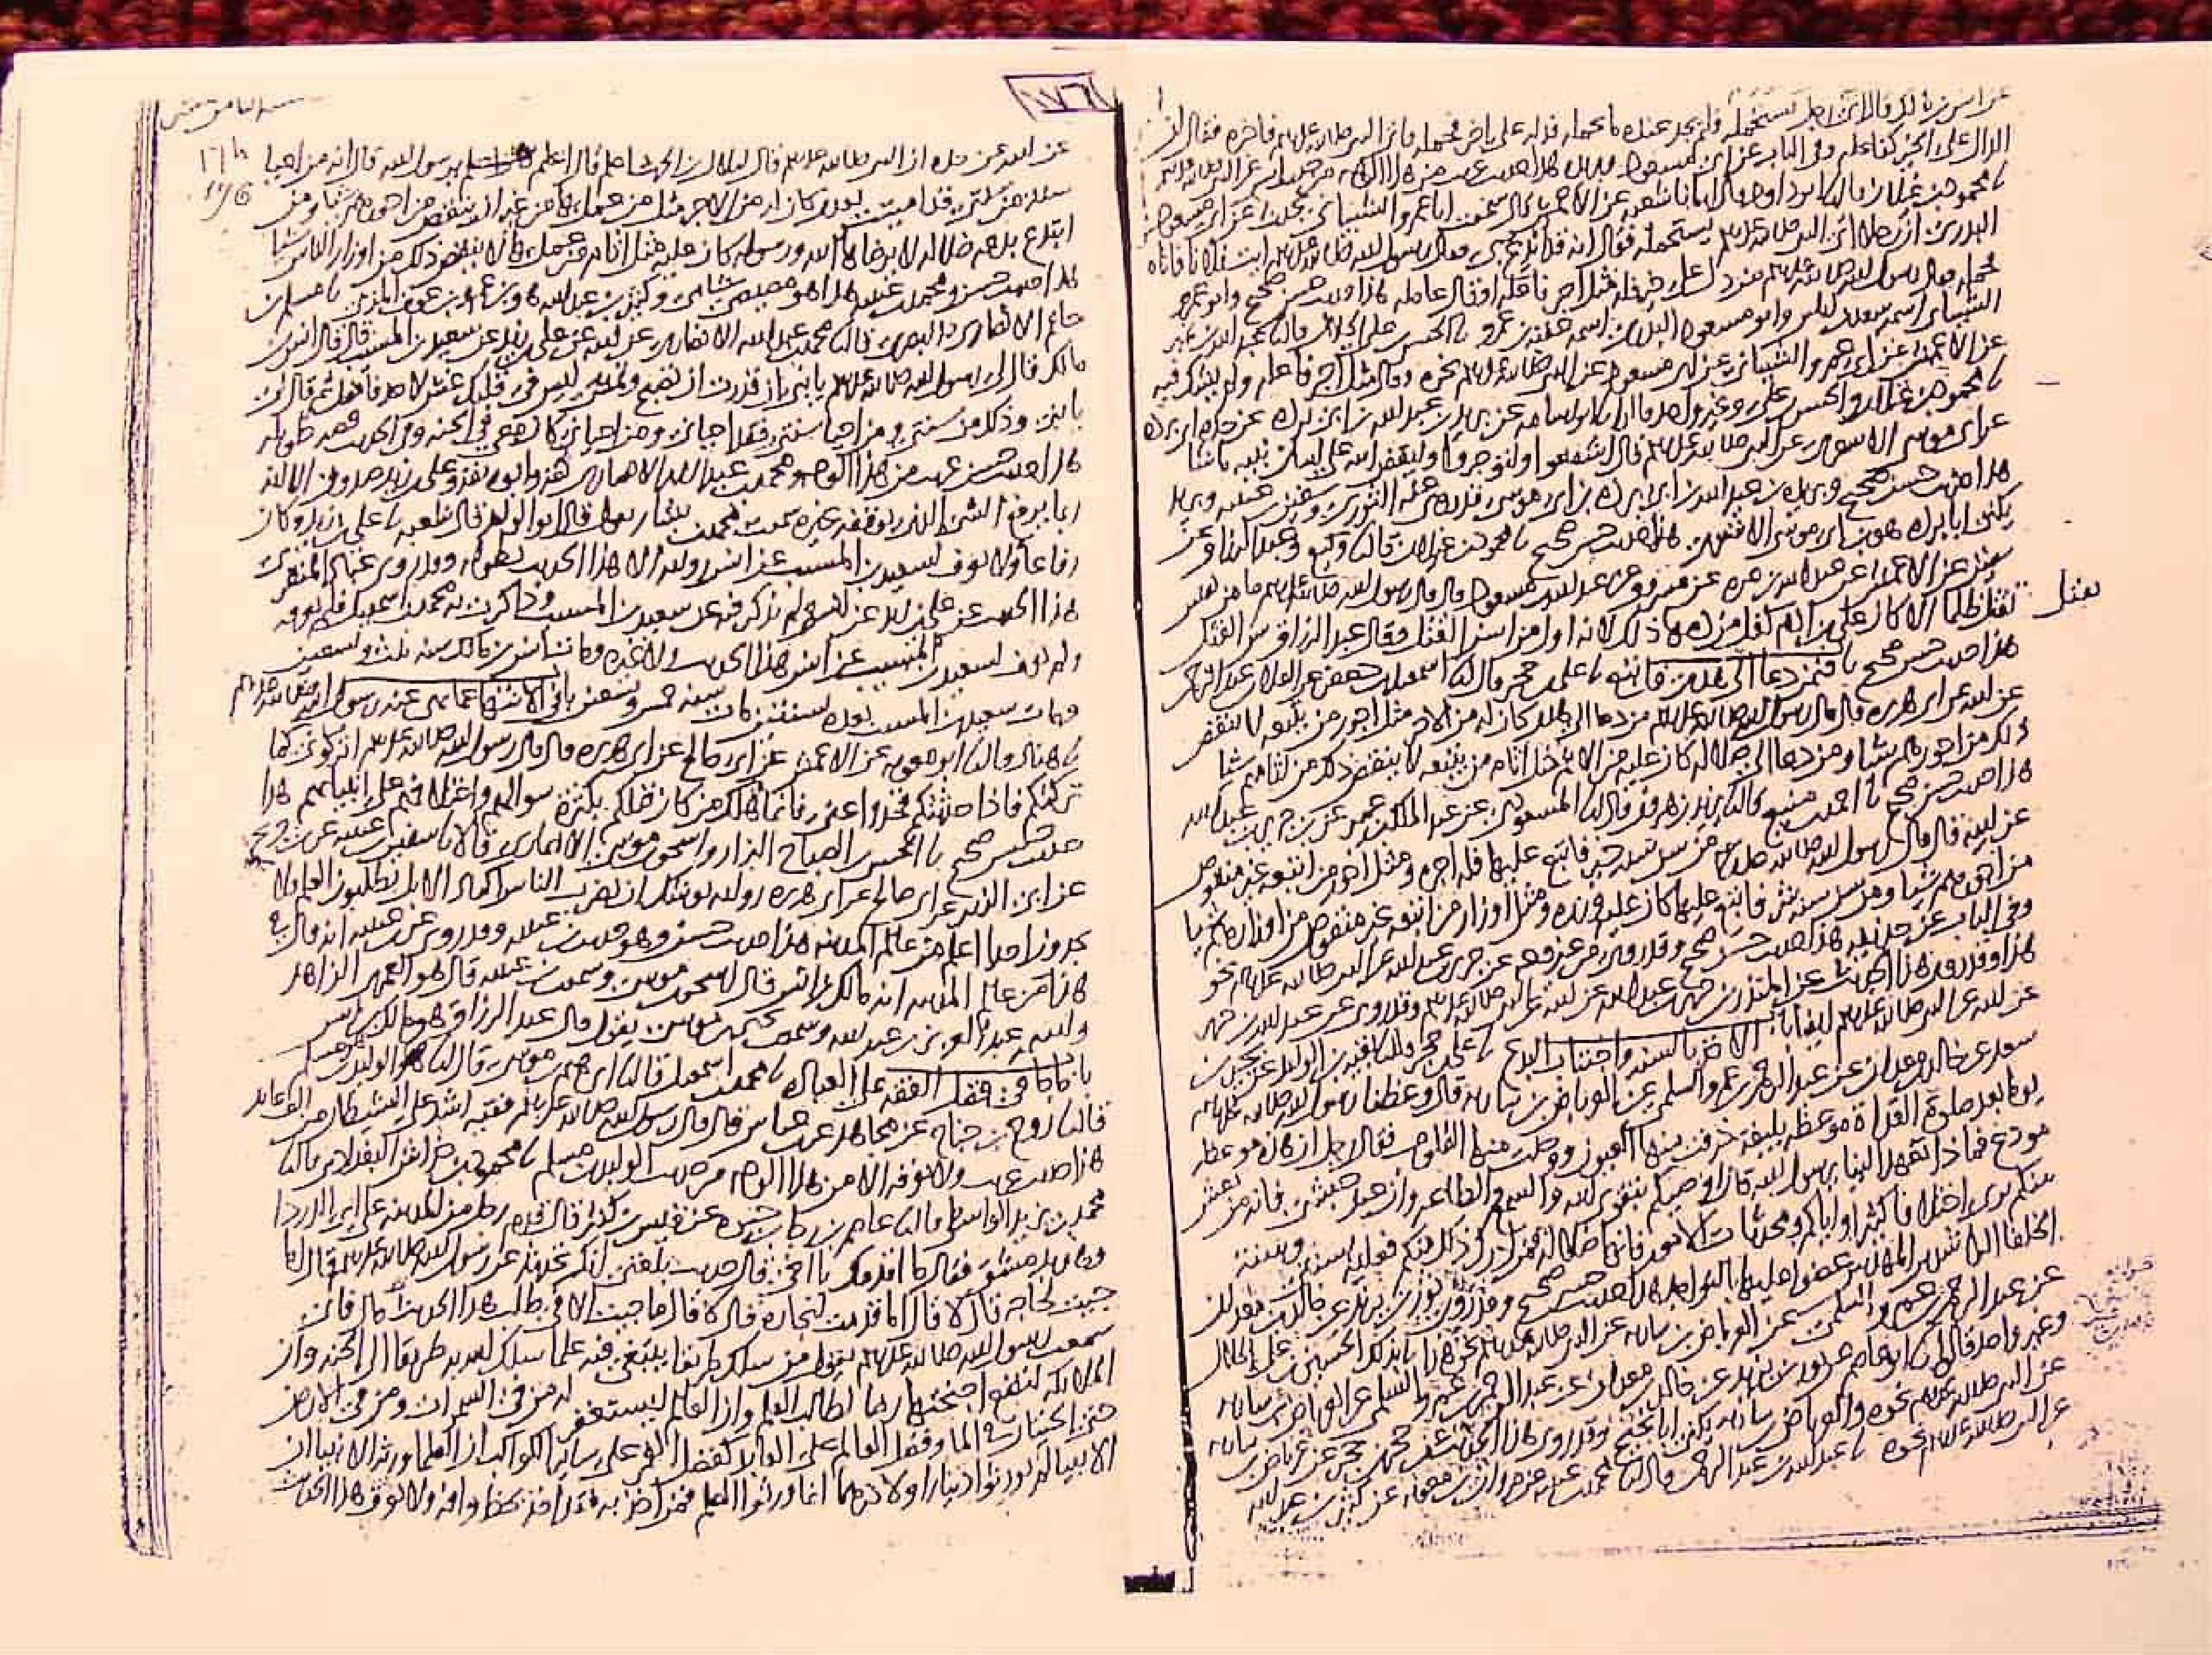 عن انس بن مالك قال اتى رجل يستحمله فلم يجد عنده ما يحمله فدله على اخر فحمله فاتى النبي صلى الله عليه وسلم فاخبره فقال ان
الدال على الخير كفاعله وفي الباب عن ابي مسعود هذا حديث غريب من هذا الوجه من حديث انس عن النبي صلى الله عليه وسلم
نا محمود بن غيلان قال نا ابو داود قال انبانا شعبه عن الاعمش قال سمعت ابا عمرو الشيباني يحدث عن ابي مسعود
البدري ان رجلا اتى النبي صلى الله عليه وسلم يستحمله فقال انه قد ابدع بي فقال رسول الله صلى الله عليه وسلم ائت فلانا فاتاه
فحمله فقال رسول الله صلى الله عليه وسلم من دل على خير فله مثل اجر فاعله او قال عامله هذا حديث حسن صحيح وابو عمرو
الشيباني اسمه سعد بن اياس وابو مسعود البدري اسمه عقبه بن عمرو نا الحسن بن علي الخلال قال نا عبد الله بن نمير
عن الاعمش عن ابي عمرو الشيباني عن ابي مسعود عن النبي صلى الله عليه وسلم نحوه وقال مثل اجر فاعله ولم يشك فيه
نا محمود بن غيلان والحسن بن علي وغير واحد قالوا نا ابو اسامه عن بريد بن عبد الله بن ابي برده عن جده ابي برده
عن ابي موسى الاشعري عن النبي صلى الله عليه وسلم قال اشفعوا ولتوجروا وليقض الله على لسان نبيه ما شا
هذا حديث حسن صحيح وبريد بن عبد الله بن ابي برده بن ابي موسى قد روى عنه الثوري وسفين بن عيينه وبريد
يكنى ابا برده هو بن ابي موسى الاشعري هذا حديث حسن صحيح نا محمود بن غيلان قال نا وكيع وعبد الرزاق عن
سفين عن الاعمش عن عبد الله بن مره عن مسروق عن عبد الله بن مسعود قال قال رسول الله صلى الله عليه وسلم ما من نفس
تقتل ظلما الا كان على بن ادم كفل من دمها ذلك لانه اول من اسن القتل وقال عبد الرزاق سن القتل
هذا حديث حسن صحيح نا فيمن دعا الى هدى فاتبع نا علي بن حجر قال نا اسمعيل بن جعفر عن العلا بن عبد الرحمن
عن ابيه عن ابي هريره قال قال رسول الله صلى الله عليه وسلم من دعا الى هدى كان له من الاجر مثل اجور من يتبعه لا ينقص
ذلك من اجورهم شيا ومن دعا الى ضلاله كان عليه من الاثم مثل اثام من يتبعه لا ينقص ذلك من اثامهم شيا
هذا حديث حسن صحيح نا احمد بن منيع قال نا يزيد بن هرون قال نا المسعودي عن عبد الملك بن عمير عن بن جرير بن عبد الله
عن ابيه قال قال رسول الله صلى الله عليه وسلم من سن سنه خير فاتبع عليها فله اجره ومثل اجور من اتبعه غير منقوص
من اجورهم شيا ومن سن سنه شر فاتبع عليها كان عليه وزره ومثل اوزار من اتبعه غير منقوص من اوزارهم شيا
وفي الباب عن حذيفه هذا حديث حسن صحيح وقد روي من غير وجه عن جرير بن عبد الله عن النبي صلى الله عليه وسلم نحو
هذا وقد روي هذا الحديث عن المنذر بن جرير بن عبد الله عن ابيه عن النبي صلى الله عليه وسلم وقد روي عن عبيد الله بن جرير
عن ابيه عن النبي صلى الله عليه وسلم ايضا باب الاخذ بالسنه واجتناب البدع نا علي بن حجر قال نا بقيه بن الوليد عن بحير بن
سعد عن خالد بن معدان عن عبد الرحمن بن عمرو السلمي عن العرباض بن ساريه قال وعظنا رسول الله صلى الله عليه وسلم
يوما بعد صلوة الغداة موعظه بليغه ذرفت منها العيون ووجلت منها القلوب فقال رجل ان هذه موعظه
مودع فماذا تعهد الينا يرسول الله قال اوصيكم بتقوى الله والسمع والطاعه وان عبد حبشي فانه من يعش
منكم يرى اختلافا كثيرا واياكم ومحدثات الامور فانها ضلاله فمن ادرك ذلك منكم فعليه بسنتي وسنة
الخلفا الراشدين المهديين عضوا عليها بالنواجذ هذا حديث حسن صحيح وقد روى ثور بن يزيد عن خالد بن معدان
عن عبد الرحمن بن عمرو السلمي عن العرباض بن ساريه عن النبي صلى الله عليه وسلم نحو هذا نا بذلك الحسن بن علي الخلال
وغير واحد قالوا نا ابو عاصم عن ثور بن يزيد عن خالد بن معدان عن عبد الرحمن بن عمرو السلمي عن العرباض بن ساريه
عن النبي صلى الله عليه وسلم نحوه والعرباض بن ساريه يكنى ابا نجيح وقد روي هذا الحديث عن حجر بن حجر عن عرباض بن ساريه
عن النبي صلى الله عليه وسلم نحوه نا عبد الله بن عبد الرحمن قال نا محمد بن عيينه عن مروان بن معويه عن كثير بن عبد الله
يقتل
١٧٦
عن ابيه عن جده ان النبي صلى الله عليه وسلم قال لبلال بن الحرث اعلم قال اعلم يرسول الله قال انه من احيا
١٧٥
١٧٦
سنه من سنتي قد اميتت بعدي كان له من الاجر مثل من عمل بها من غير ان ينقص من اجورهم شيا ومن
ابتدع بدعه ضلاله لا يرضاها الله ورسوله كان عليه مثل اثام من عمل بها لا ينقص ذلك من اوزار الناس شيا
هذا حديث حسن ومحمد بن عيينه هذا هو مصيصي شامي وكثير بن عبد الله هو بن عمرو بن عوف المزني نا مسلم بن
حاتم الانصاري البصري قال نا محمد بن عبد الله الانصاري عن ابيه عن علي بن زيد عن سعيد بن المسيب قال قال انس بن
مالك قال لي رسول الله صلى الله عليه وسلم يا بني ان قدرت ان تصبح وتمسي ليس في قلبك غش لاحد فافعل ثم قال لي
يا بني وذلك من سنتي ومن احيا سنتي فقد احياني ومن احياني كان معي في الجنه وفي الحديث قصه طويله
هذا حديث حسن غريب من هذا الوجه ومحمد بن عبد الله الانصاري ثقه وابوه ثقه وعلي بن زيد صدوق الا انه
ربما يرفع الشي الذي يوقفه غيره سمعت محمد بن بشار يقول قال ابو الوليد قال شعبه نا علي بن زيد وكان
رفاعا ولا نعرف لسعيد بن المسيب عن انس روايه الا هذا الحديث بطوله وقد روى عباد المنقري
هذا الحديث عن علي بن زيد عن انس ولم يذكر فيه عن سعيد بن المسيب وذاكرت به محمد بن اسمعيل فلم يعرفه
ولم يعرف لسعيد بن المسيب عن انس هذا الحديث ولا غيره ومات انس بن مالك سنه ثلث وتسعين
ومات سعيد بن المسيب بعده بسنتين مات سنه خمس وتسعين باب في الانتها عما نهى عنه رسول الله صلى الله عليه وسلم
نا هناد قال نا ابو معويه عن الاعمش عن ابي صالح عن ابي هريره قال قال رسول الله صلى الله عليه وسلم اتركوني كما
تركتكم فاذا حدثتكم فخذوا عني فانما هلك من كان قبلكم بكثرة سوالهم واختلافهم على انبيائهم هذا
حديث حسن صحيح نا الحسن بن الصباح البزار واسحق بن موسى الانصاري قالا نا سفين بن عيينه عن بن جريج
عن ابي الزبير عن ابي صالح عن ابي هريره روايه يوشك ان يضرب الناس اكباد الابل يطلبون العلم فلا
يجدون احدا اعلم من عالم المدينه هذا حديث حسن وهو حديث بن عيينه وقد روي عن بن عيينه انه قال في
هذا من عالم المدينه انه مالك بن انس قال اسحق بن موسى وسمعت بن عيينه قال هو العمري الزاهد
واسمه عبد العزيز بن عبد الله وسمعت يحيى بن موسى يقول قال عبد الرزاق هو مالك بن انس
باب ما جا في فضل الفقه على العباده نا محمد بن اسمعيل قال نا ابرهيم بن موسى قال نا الوليد بن مسلم
قال نا روح بن جناح عن مجاهد عن بن عباس قال قال رسول الله صلى الله عليه وسلم فقيه اشد على الشيطان من الف عابد
هذا حديث غريب ولا نعرفه الا من هذا الوجه من حديث الوليد بن مسلم نا محمود بن خداش البغدادي قال نا
محمد بن يزيد الواسطي قال نا عاصم بن رجا بن حيوه عن قيس بن كثير قال قدم رجل من المدينه على ابي الدردا
وهو بدمشق فقال ما اقدمك يا اخي قال حديث بلغني انك تحدثه عن رسول الله صلى الله عليه وسلم قال اما
جيت لحاجه قال لا قال اما قدمت لتجارة قال لا قال ما جيت الا في طلب هذا الحديث قال فاني
سمعت رسول الله صلى الله عليه وسلم يقول من سلك طريقا يبتغي فيه علما سلك الله به طريقا الى الجنه وان
الملائكه لتضع اجنحتها رضا لطالب العلم وان العالم ليستغفر له من في السموات ومن في الارض
حتى الحيتان في الما وفضل العالم على العابد كفضل القمر على سائر الكواكب ان العلما ورثة الانبيا ان
الانبيا لم يورثوا دينارا ولا درهما انما ورثوا العلم فمن اخذ به فقد اخذ بحظ وافر ولا نعرف هذا الحديث